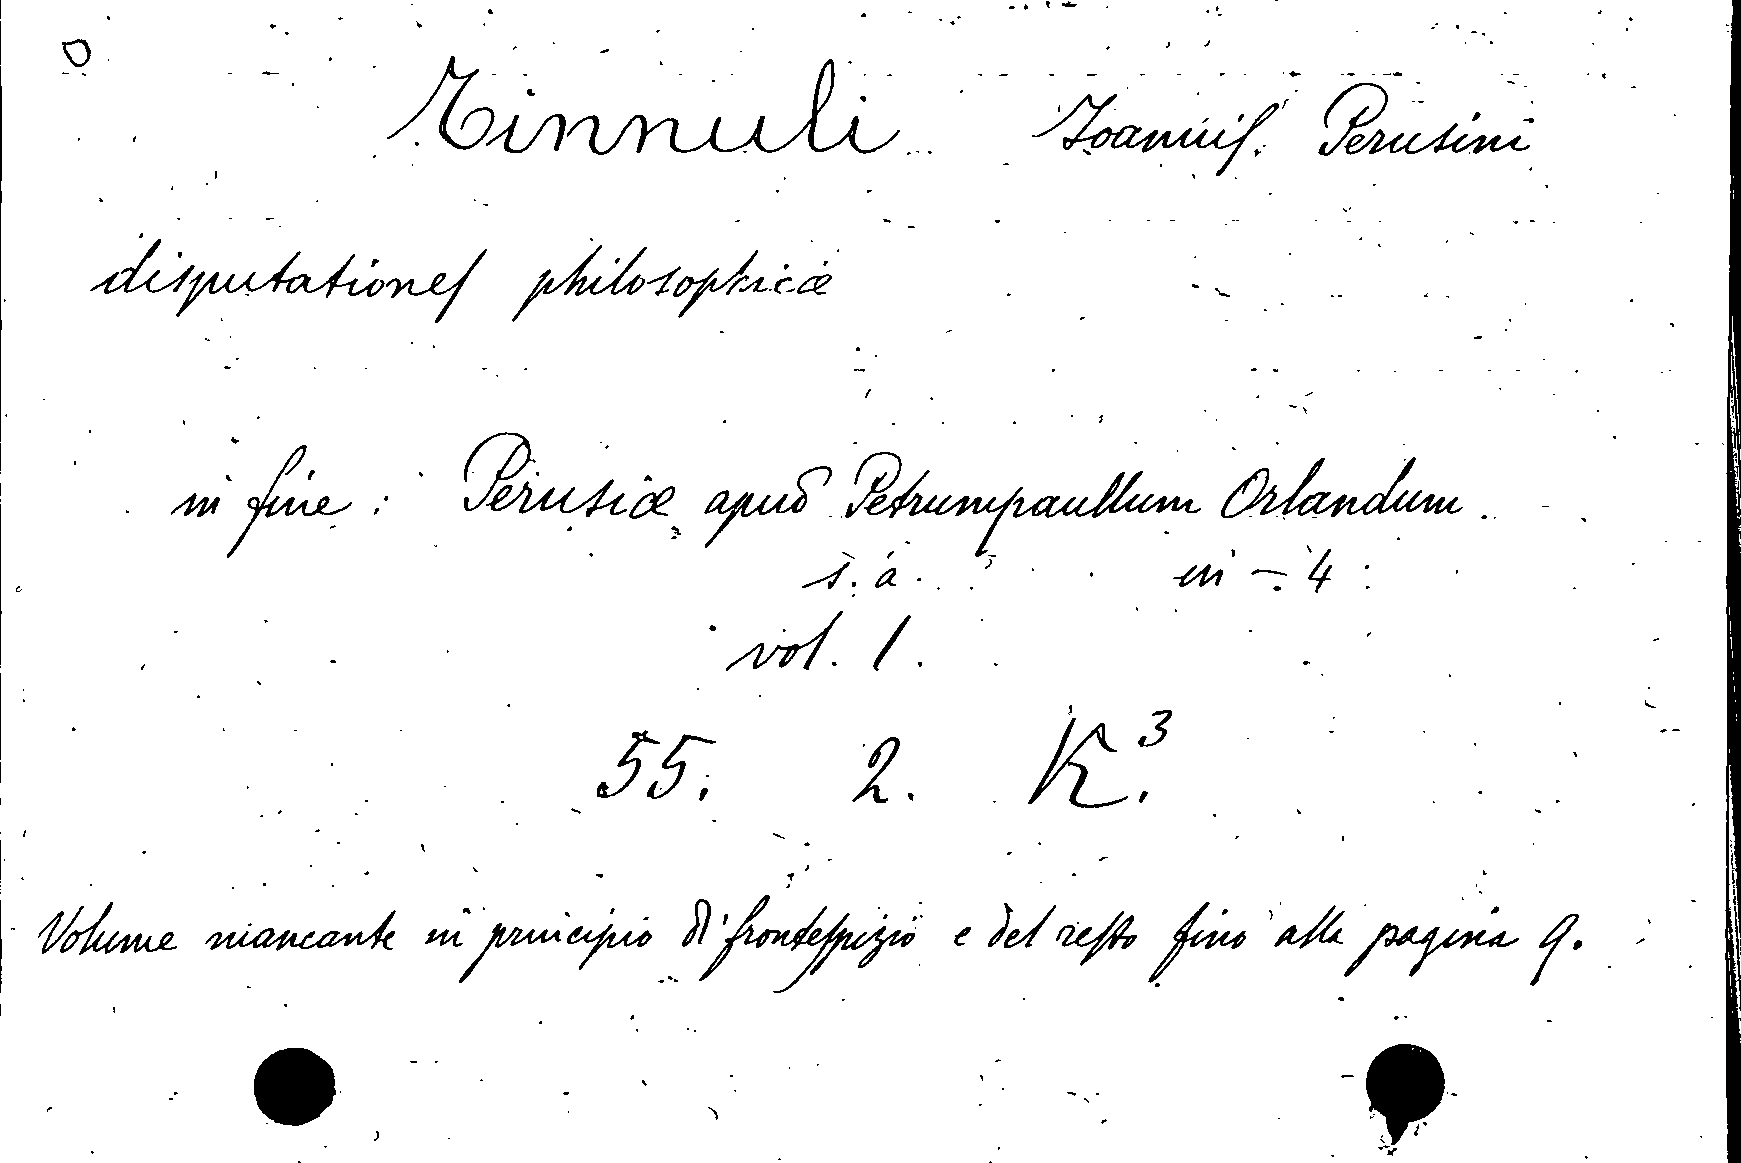 Tinnuli Joannis. Perusini
disputationes philosophicæ
in fine: Perusiæ apud Petrumpaullum Orlandum.
s. a. in - 4:
vol. 1.
55. 2. K.³
Volume mancante in principio di frontespizio e del resto fino alla pagina 9.